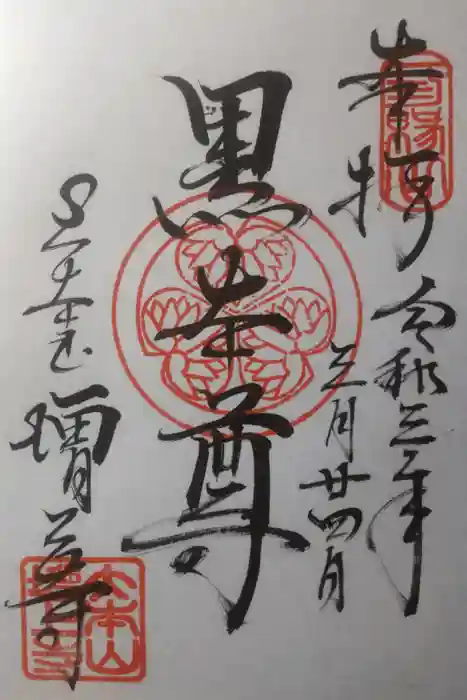 奉拝
三縁山
令和三年
三月廿四日
黒本尊
増上寺
大本山
増上寺